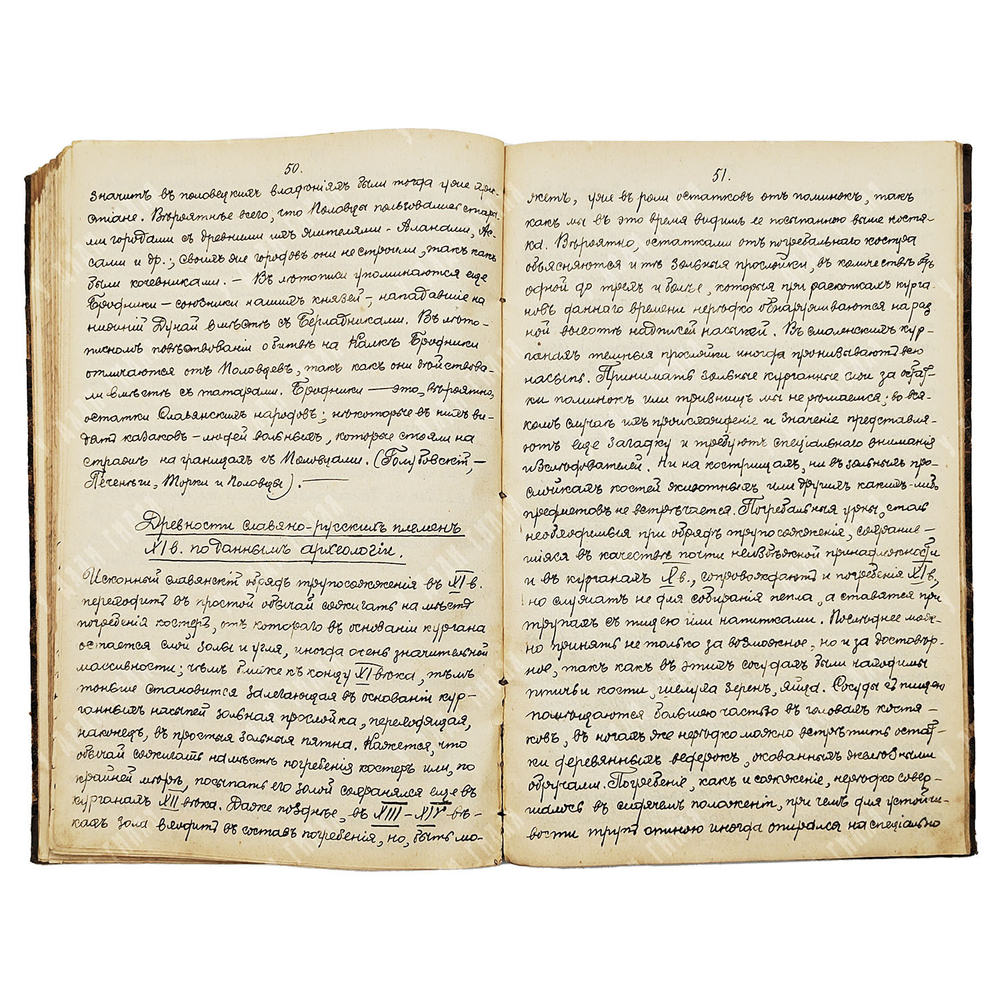 50.
значитъ въ половецкихъ владѣніяхъ были тогда уже хри-
стіане. Вѣроятнѣе всего, что Половцы пользовались стары-
ми городами съ древними ихъ жителями - Аланами, Яс-
сами и др.; своихъ же городовъ они не строили, такъ какъ
были кочевниками. — Въ лѣтописи упоминаются еще
Бродники – союзники нашихъ князей –, нападавшіе на
нижній Дунай вмѣстѣ съ Берладниками. Въ лѣто-
писномъ повѣствованіи о битвѣ на Калкѣ Бродники
отличаются отъ Половцевъ, такъ какъ они дѣйствова-
ли вмѣстѣ съ татарами. Бродники — это, вѣроятно,
остатки Славянскихъ народовъ; нѣкоторые въ нихъ ви-
дятъ казаковъ – людей вольныхъ, которые стояли на
стражѣ на границахъ съ Половцами. (Голубовскій, –
Печенѣги, Торки и Половцы). —
Древности славяно-русскихъ племенъ
XI в. по даннымъ археологіи.
Исконный славянскій обрядъ трупосожженія въ XI в.
переходитъ въ простой обычай сожигать на мѣстѣ
погребенія костеръ, отъ котораго въ основаніи кургана
остается слой золы и угля, иногда очень значительной
массивности; чѣмъ ближе къ концу XI вѣка, тѣмъ
тоньше становится залегающая въ основаніи кур-
ганныхъ насыпей зольная прослойка, переходящая,
наконецъ, въ простыя зольныя пятна. Кажется, что
обычай сожигать на мѣстѣ погребенія костеръ или, по
крайней мѣрѣ, посыпать его золой сохранялся еще въ
курганахъ XII вѣка. Даже позднѣе, въ XIII – XIV вѣ-
кахъ зола входитъ въ составъ погребенія, но, быть мо-
51.
жетъ, уже въ роли остатковъ отъ поминокъ, такъ
какъ мы въ это время видимъ ее посыпанною выше костя-
ка. Вѣроятно, остатками отъ погребальнаго костра
объясняются и тѣ зольныя прослойки, въ количествѣ отъ
одной до трехъ и болѣе, которыя при раскопкахъ курга-
новъ даннаго времени нерѣдко обнаруживаются на раз-
ной высотѣ надписей насыпей. Въ смоленскихъ кур-
ганахъ темныя прослойки иногда пронизываютъ всю
насыпь. Принимать зольные курганные слои за остат-
ки поминокъ или тризнищъ мы не рѣшаемся; во вся-
комъ случаѣ ихъ происхожденіе и значеніе представля-
ютъ еще загадку и требуютъ спеціальнаго вниманія
изслѣдователей. Ни на кострищахъ, ни въ зольныхъ про-
слойкахъ костей животныхъ или другихъ какихъ-либо
предметовъ не встрѣчается. Погребальныя урны, столь
необходимыя при обрядѣ трупосожженія, сохранив-
шіяся въ качествѣ почти неизбѣжной принадлежности
и въ курганахъ X в., сопровождаютъ и погребенія XI в.,
но служатъ не для собиранія пепла, а ставятся при
трупахъ съ пищею или напитками. Послѣднее мож-
но принять не только за возможное, но и за достовѣр-
ное, такъ какъ въ этихъ сосудахъ были находимы
птичьи кости, шелуха зеренъ, яйца. Сосуды съ пищею
помѣщаются большею частью въ головахъ костя-
ковъ, въ ногахъ же нерѣдко можно встрѣтить остат-
ки деревянныхъ ведерокъ, окованныхъ желѣзными
обручами. Погребеніе, какъ и сожженіе, нерѣдко совер-
шалось въ сидячемъ положеніи, при чемъ для устойчи-
вости трупъ спиною иногда опирался на спеціально